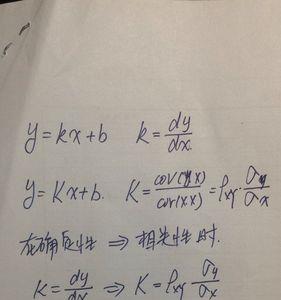 y=kx+b k=dy/dx
y=Kx+b. K=cov(y,x)/cor(x,x)=ρxy·σy/σx
在确定性⇒相关性时.
K=dy/dx⇒K=ρxy σy/σx